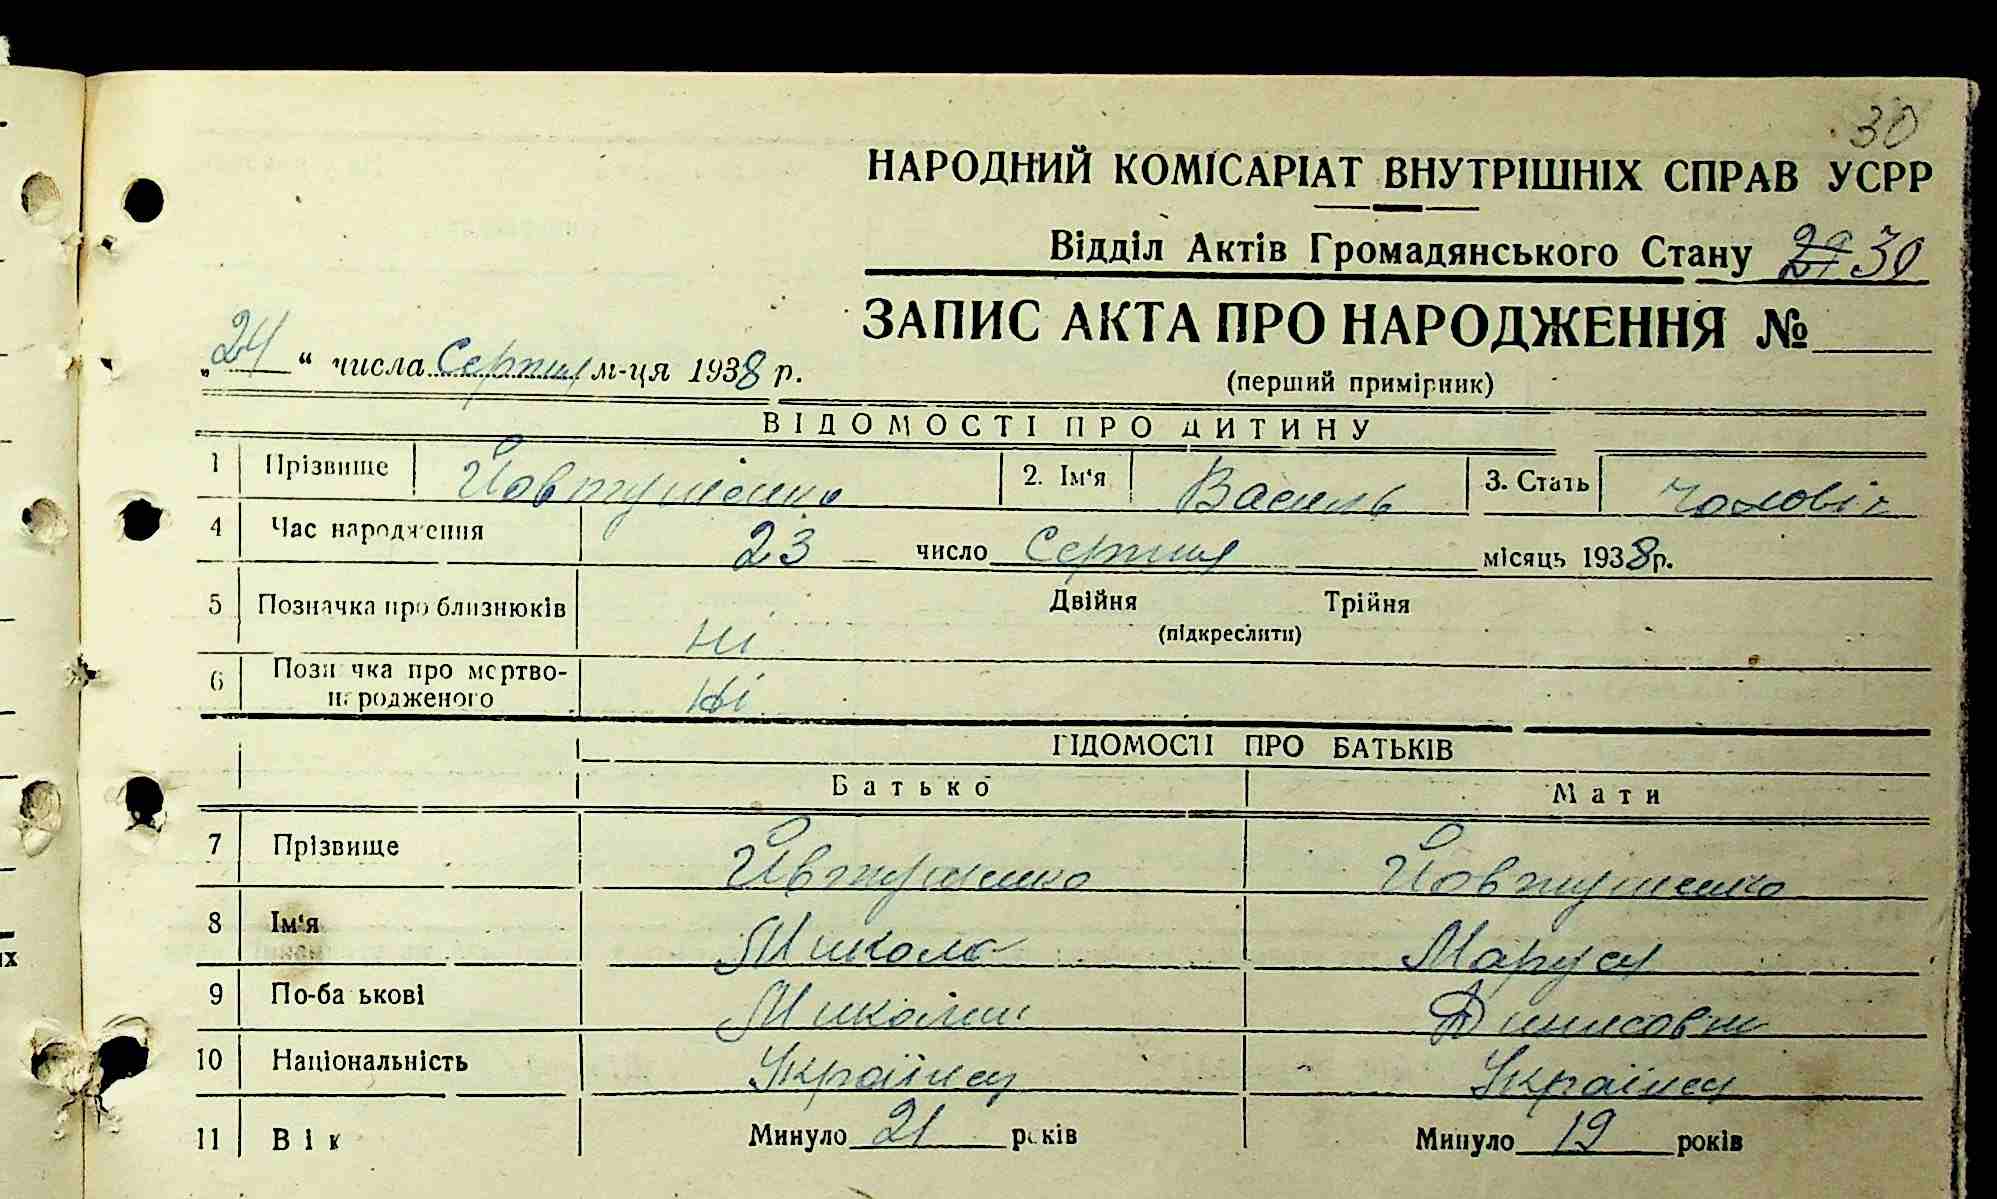 30
НАРОДНИЙ КОМІСАРІАТ ВНУТРІШНІХ СПРАВ УСРР
Відділ Актів Громадянського Стану 30
ЗАПИС АКТА ПРО НАРОДЖЕННЯ №
„24“ числа Серпня м-ця 1938 р.
(перший примірник)
ВІДОМОСТІ ПРО ДИТИНУ
1 Прізвище Йовтушенко 2. Ім'я Василь 3. Стать чоловіч
4 Час народження 23 число Серпня місяць 1938 р.
5 Позначка про близнюків Ні Двійня Трійня
(підкреслити)
6 Позначка про мертво-
народженого Ні
ВІДОМОСТІ ПРО БАТЬКІВ
Батько Мати
7 Прізвище Йвтушенко Йовтушенко
8 Ім'я Микола Маруся
9 По-ба ькові
10 Національність Українец Українец
11 Вік Минуло 21 років Минуло 19 років
их